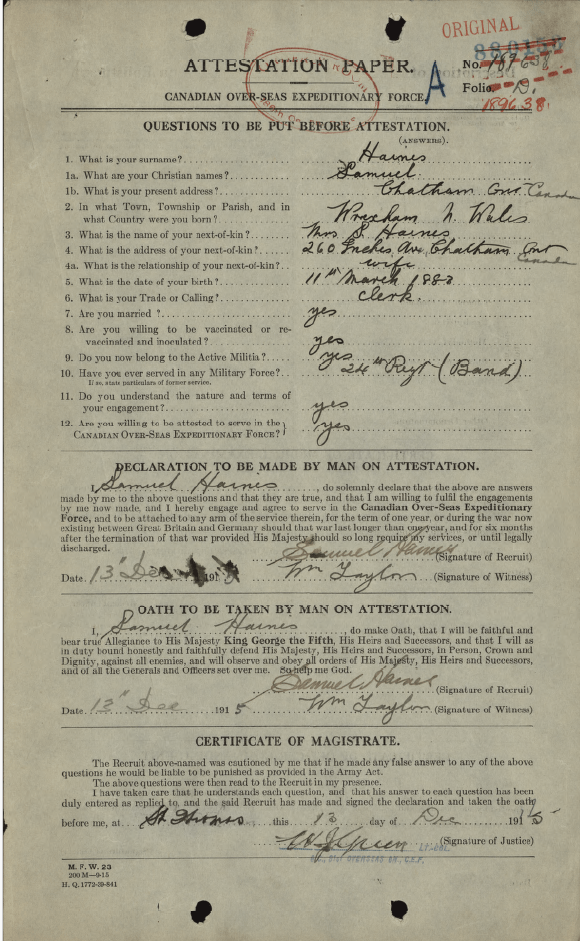 ORIGINAL
ATTESTATION PAPER.
No. 189638.
A
Folio. D.
CANADIAN OVER-SEAS EXPEDITIONARY FORCE.
189638.
QUESTIONS TO BE PUT BEFORE ATTESTATION.
(ANSWERS).
1. What is your surname? Haines
1a. What are your Christian names? Samuel
1b. What is your present address? Chatham Ont Canada
2. In what Town, Township or Parish, and in
what Country were you born? Wrexham N. Wales
3. What is the name of your next-of-kin? Mrs S. Haines
4. What is the address of your next-of-kin? 260 Inches Ave Chatham Ont
Canada
4a. What is the relationship of your next-of-kin? wife
5. What is the date of your birth? 11th March 1880
6. What is your Trade or Calling? Clerk.
7. Are you married? yes
8. Are you willing to be vaccinated or re-
vaccinated and inoculated? yes
9. Do you now belong to the Active Militia? yes
10. Have you ever served in any Military Force? 24th Regt (Band)
If so, state particulars of former service.
11. Do you understand the nature and terms of
your engagement? yes
12. Are you willing to be attested to serve in the
CANADIAN OVER-SEAS EXPEDITIONARY FORCE? yes
DECLARATION TO BE MADE BY MAN ON ATTESTATION.
I, Samuel Haines, do solemnly declare that the above are answers
made by me to the above questions and that they are true, and that I am willing to fulfil the engagements
by me now made, and I hereby engage and agree to serve in the Canadian Over-Seas Expeditionary
Force, and to be attached to any arm of the service therein, for the term of one year, or during the war now
existing between Great Britain and Germany should that war last longer than one year, and for six months
after the termination of that war provided His Majesty should so long require my services, or until legally
discharged.
Samuel Haines (Signature of Recruit)
Date 13" Dec 1915 Wm Taylor (Signature of Witness)
OATH TO BE TAKEN BY MAN ON ATTESTATION.
I, Samuel Haines, do make Oath, that I will be faithful and
bear true Allegiance to His Majesty King George the Fifth, His Heirs and Successors, and that I will as
in duty bound honestly and faithfully defend His Majesty, His Heirs and Successors, in Person, Crown and
Dignity, against all enemies, and will observe and obey all orders of His Majesty, His Heirs and Successors,
and of all the Generals and Officers set over me. So help me God.
Samuel Haines (Signature of Recruit)
Date 13" Dec 1915 Wm Taylor (Signature of Witness)
CERTIFICATE OF MAGISTRATE.
The Recruit above-named was cautioned by me that if he made any false answer to any of the above
questions he would be liable to be punished as provided in the Army Act.
The above questions were then read to the Recruit in my presence.
I have taken care that he understands each question, and that his answer to each question has been
duly entered as replied to, and the said Recruit has made and signed the declaration and taken the oath
before me, at St. Thomas this 13 day of Dec 1915
(Signature of Justice)
M. F. W. 23
200 M—9-15
H. Q. 1772-39-841